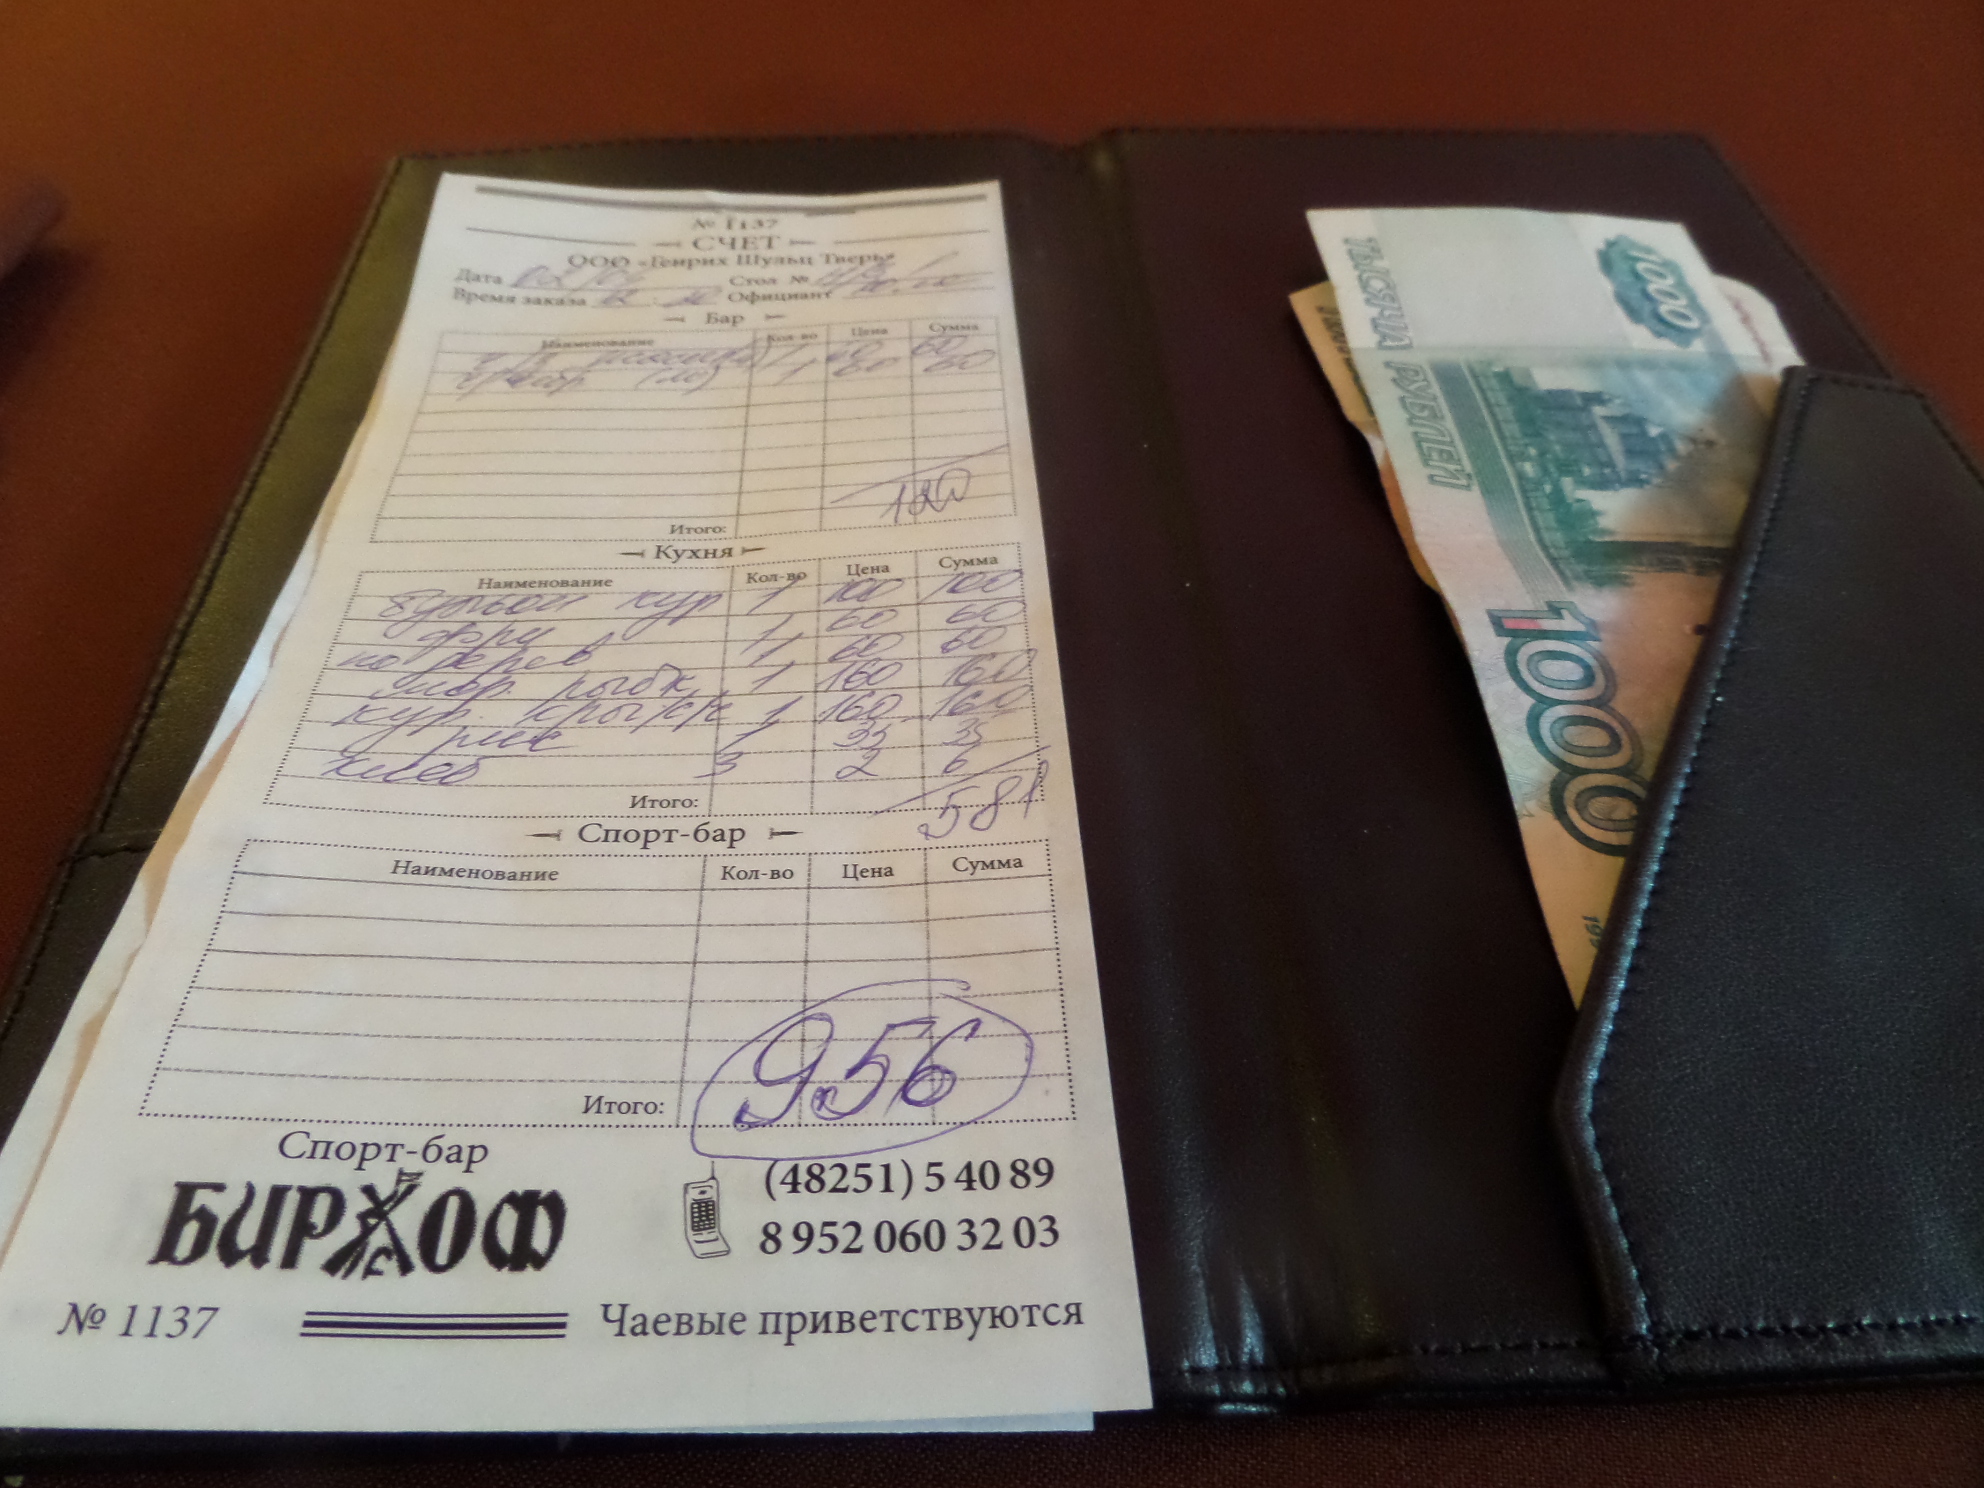 № 1137
СЧЕТ
ООО «Генрих Шульц Тверь»
Дата Стол №
Время заказа Официант
Бар
Наименование Кол-во Цена Сумма
1 60 60
(м) 1 60 60
120
Итого:
Кухня
Наименование Кол-во Цена Сумма
бульон кур 1 100 100
фри 1 60 60
по дерев 1 60 60
мор. рыбк. 1 160 160
кур. 1 160 160
рис 1 35 35
хлеб 3 2 6
Итого: 581
Спорт-бар
Наименование Кол-во Цена Сумма
956
Итого:
Спорт-бар
БИРХОФ
(48251) 5 40 89
8 952 060 32 03
№ 1137 Чаевые приветствуются
1000
ТЫСЯЧА РУБЛЕЙ
1000
199